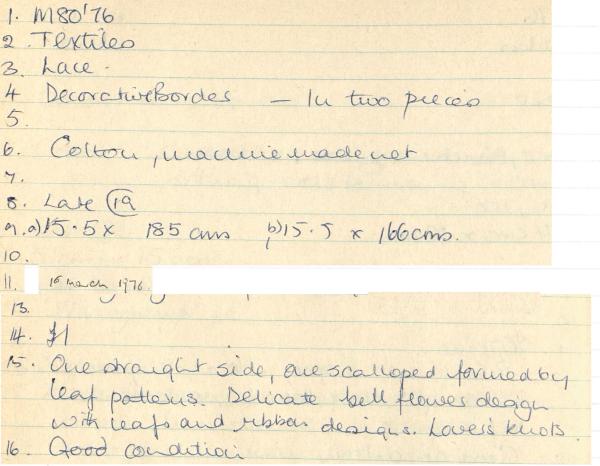 1. M80'76
2. Textiles
3. Lace.
4 Decorative Border — In two pieces
5.
6. Cotton, machine made net
7.
8. Late 19
9. a) 15.5 x 185 cms b) 15.5 x 166 cms.
10.
11. 16 march 1976.
13.
14. £1
15. One straight side, one scalloped formed by
leaf patterns. Delicate bell flower design
with leafs and ribbon designs. Lover's knots.
16. Good condition